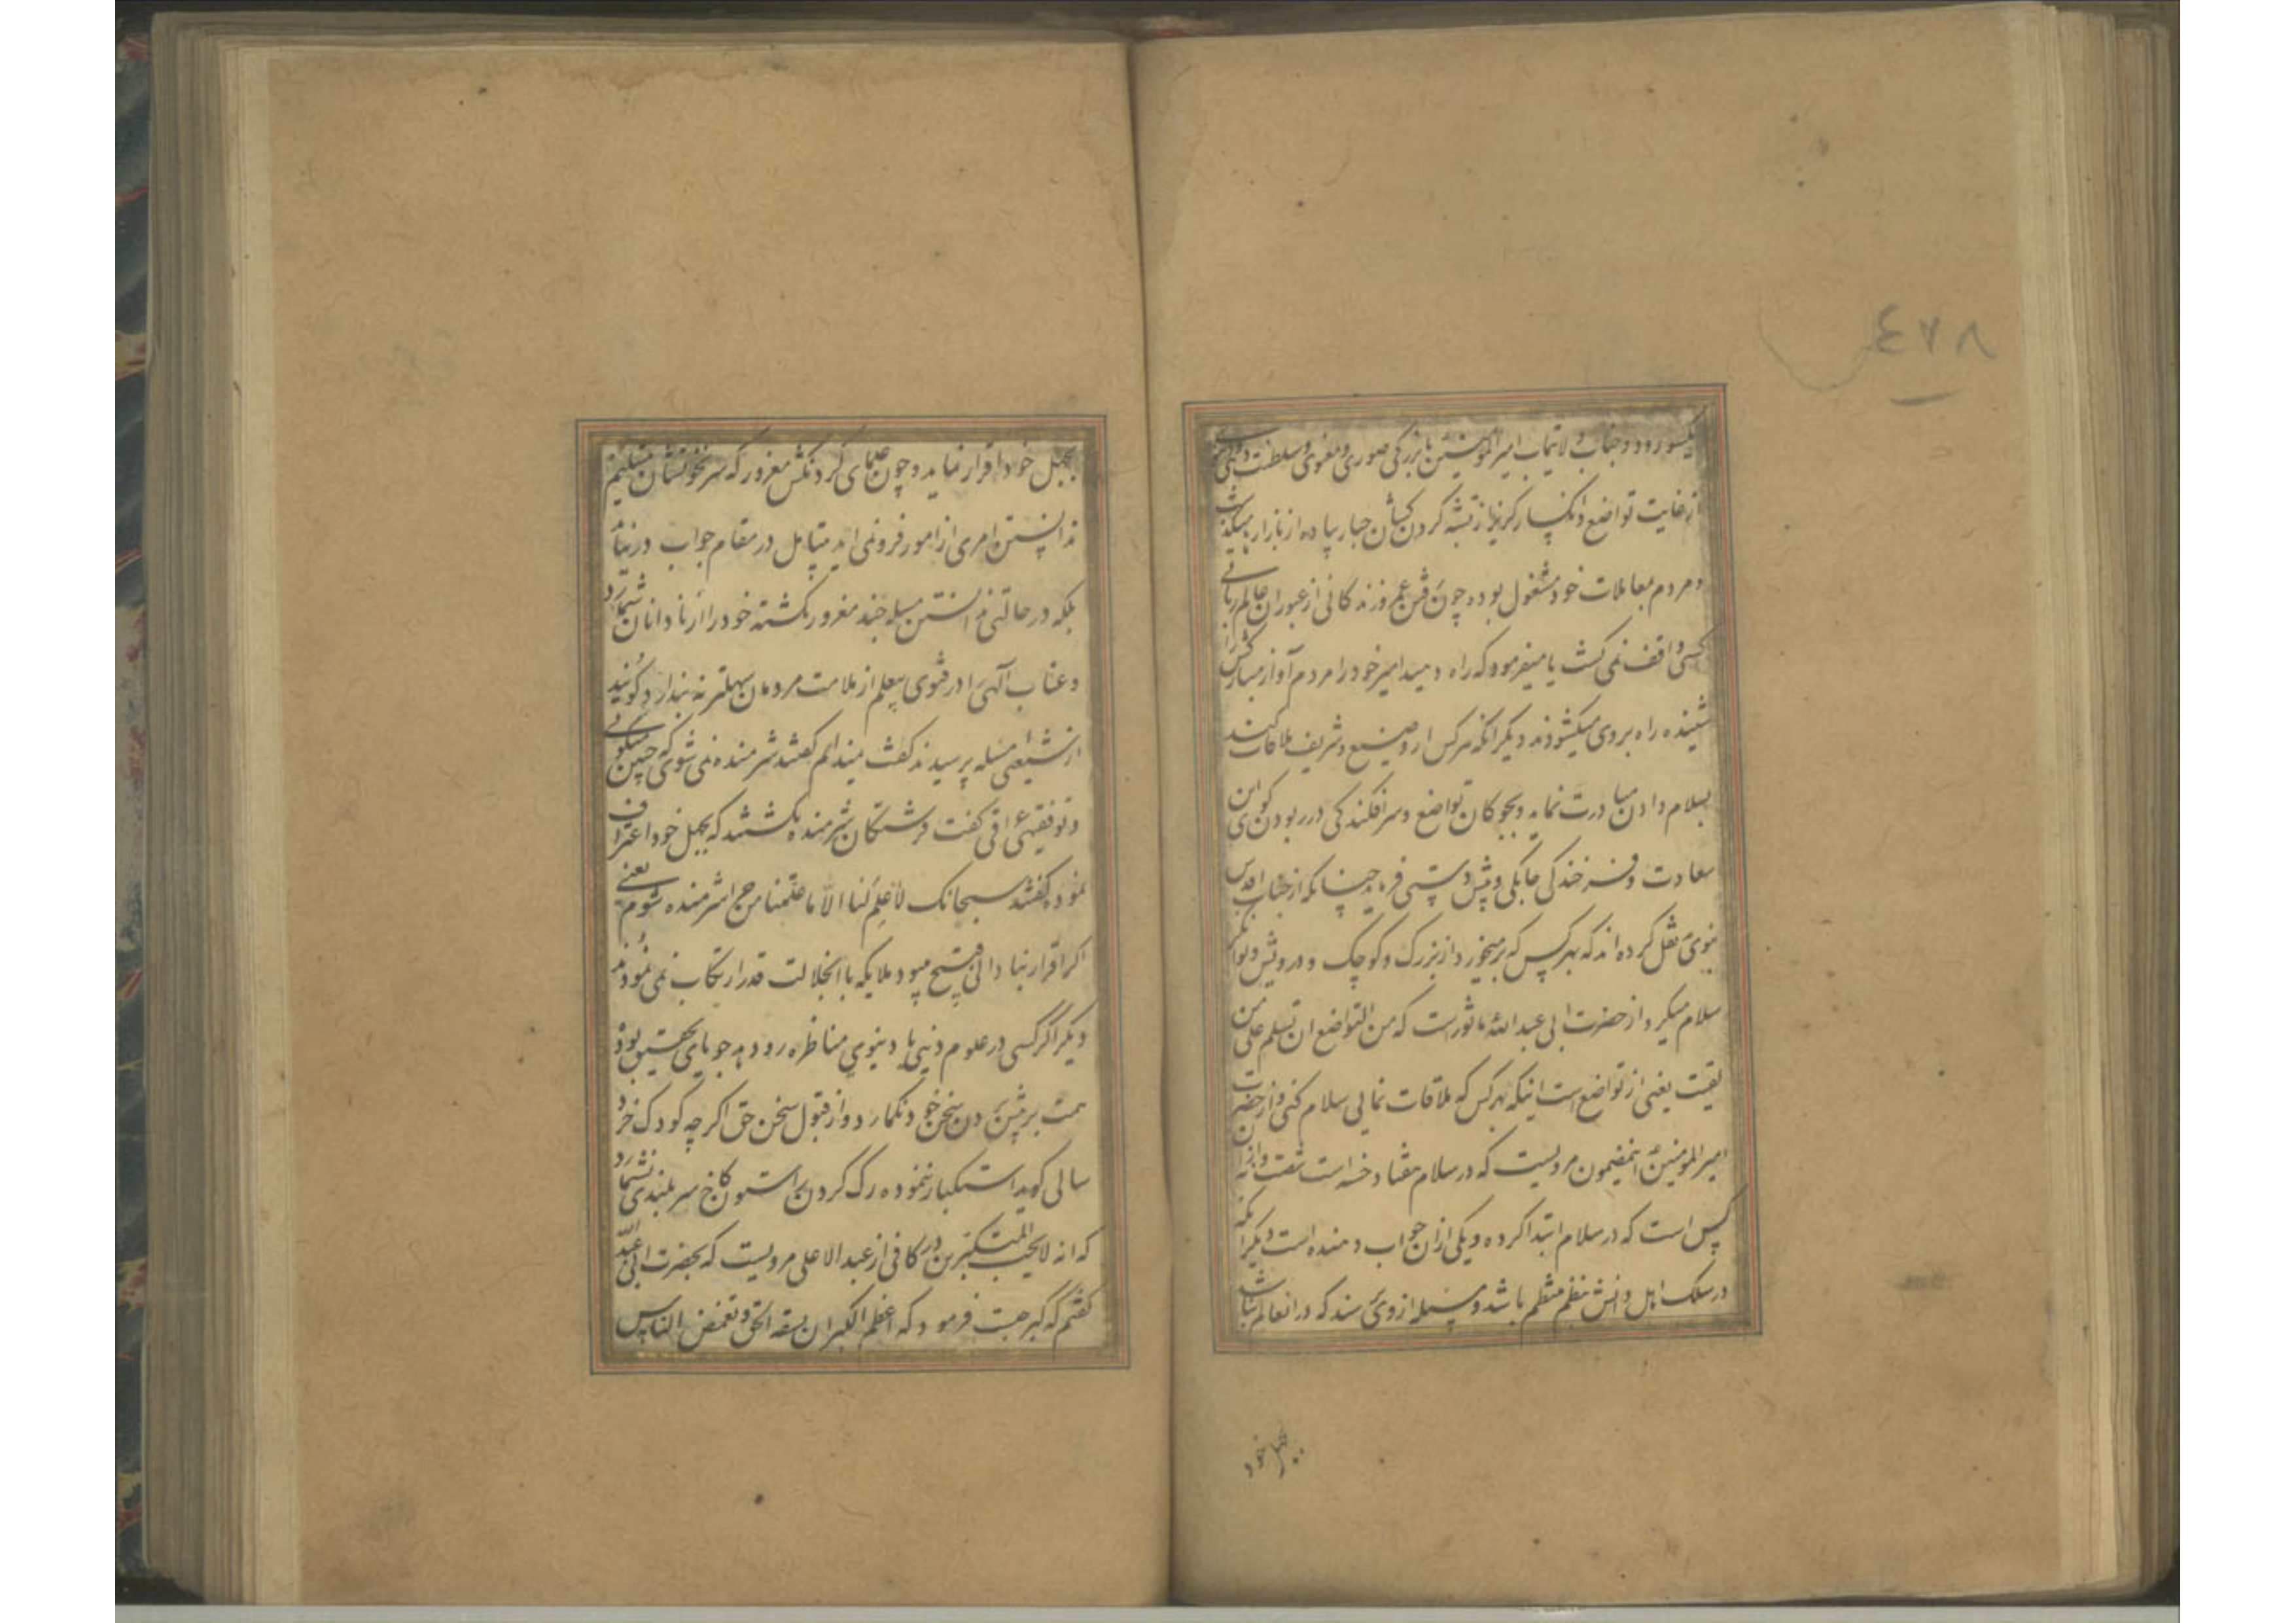 ٤٧٨
یکسو رود و جناب ولایتماب امیرالمومنین با بزرگی صوری و معنوی و سلطنت
از غایت تواضع و انکسار گریزان از تشبه گردن کشان جبار پیاده از بازار میگذشت
و مردم بمعاملات خود مشغول بوده چون عمر و زندگانی از عبور آن عالم ربانی
کسی واقف نمی گشت یا میفرمود که راه دهید امیر خود را مردم آواز مبارکش را
شنیده راه بر وی میگشودند دیگر آنکه هر کس را از وضیع و شریف ملاقات کند
بسلام دادن مبادرت نماید و بچوکان تواضع و سرافکندگی در ربودن کوی این
سعادت و فرخندگی چابکی و پیش دستی فرماید چنانکه از جناب اقدس
نبوی نقل کرده اند که بهر کس که بر میخورد از بزرگ و کوچک و درویش و توانگر
سلام میکرد از حضرت ابی عبد الله ماثور است که من التواضع ان تسلم علی من
لقیت یعنی از تواضع است اینکه بهر کس که ملاقات نمایی سلام کنی و از حضرت
امیرالمومنین اینمضمون مرویست که در سلام هفتاد حسنه است شصت و نه از آن
کس است که در سلام ابتدا کرده و یکی از آن جواب دهنده است دیگر آنکه
در سلک اهل دانش منظم باشد و مسئله از وی پرسند که در آنعالم نباشد
بجهل خود
بجهل خود اقرار نماید و چون علمای گردنکش مغرور که سر نخوتشان بتسلیم
ندانستن امری از امور فرو نمی آید متبامل در مقام جواب در نیاید
بلکه در حالتی ندانستن مسئله چند مغرور نگشته خود را از نادانان شمارد
و عتاب الهی را در فتوی بیعلم از ملامت مردمان سهلتر نه پندارد گویند
از شعبی مسئله پرسیدند گفت نمیدانم گفتند شرمنده نمی شوی که چنین میگوئی
و تو فقیه عراقی گفت فرشتگان شرمنده نگشتند که بجهل خود اعتراف
نموده گفتند سبحانک لا علم لنا الا ما علمتنا من چرا شرمنده شوم یعنی
اگر اقرار بنادانی قبیح میبود ملایکه با آن جلالت قدر ارتکاب نمی نمودند
دیگر اگر کسی در علوم دینی یا دنیوی مناظره رود دهد جویای تحقیق بوده
همت بر پیش بردن سخن خود نگمارد و از قبول سخن حق اگر چه کودک خرد
سالی گوید استکبار ننموده رگ گردن را ستون کاخ سربلندی نشمارد
که انه لا یحب المستکبرین در کافی از عبد الاعلی مرویست که بحضرت ابی عبد الله
گفتم که کبر چیست فرمود که اعظم الکبر ان تسفه الحق و تغمض الناس